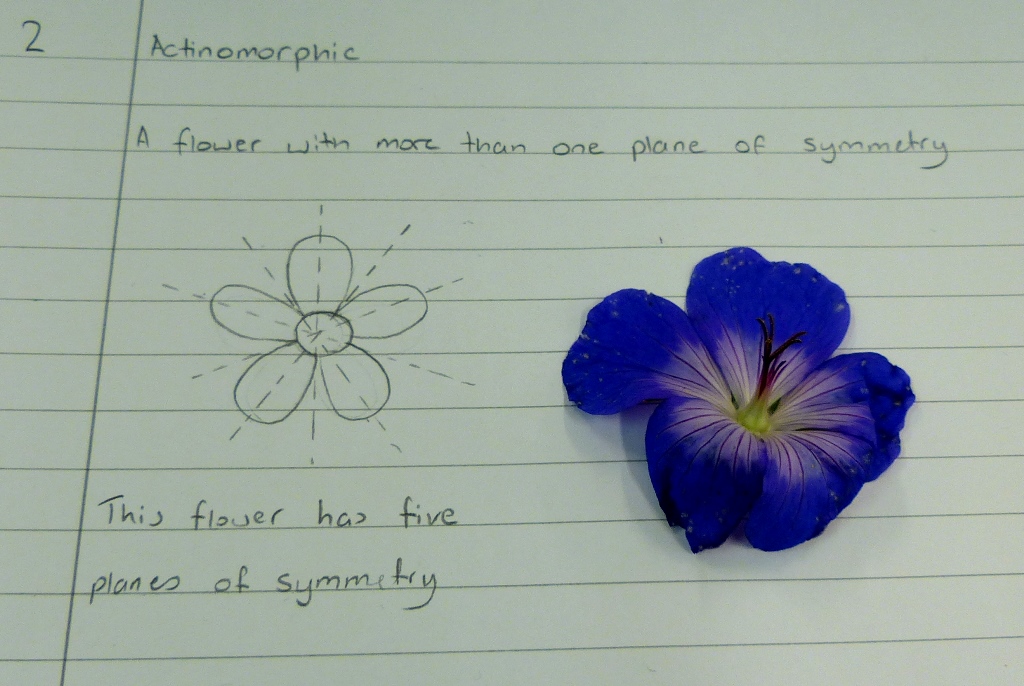 2
Actinomorphic
A flower with more than one plane of symmetry
This flower has five
planes of symmetry